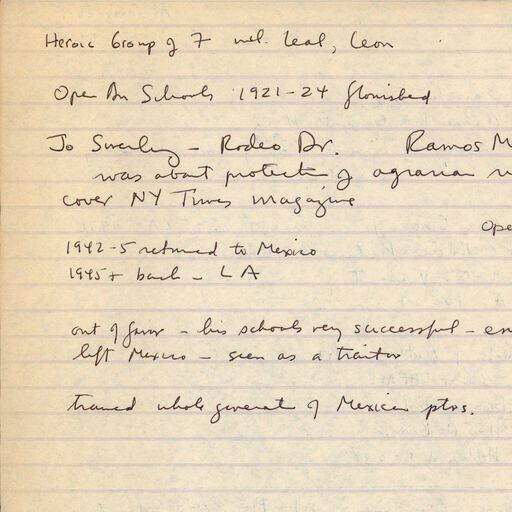 Heroic Group of 7 incl. Leal, Leon
Open Air Schools 1921-24 flourished
Jo Swerling - Rodeo Dr. Ramos M
was about protection of agrarian
cover NY Times magazine
Ope
1942-5 returned to Mexico
1945+ back - LA
out of favor - his schools very successful - en
left Mexico - seen as a traitor
trained whole generat of Mexican ptrs.